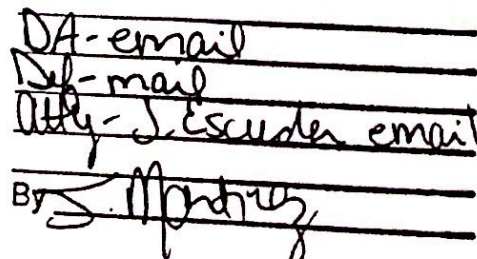 DA-email
Def-mail
Atty-J. Escuder email
By S. Martinez